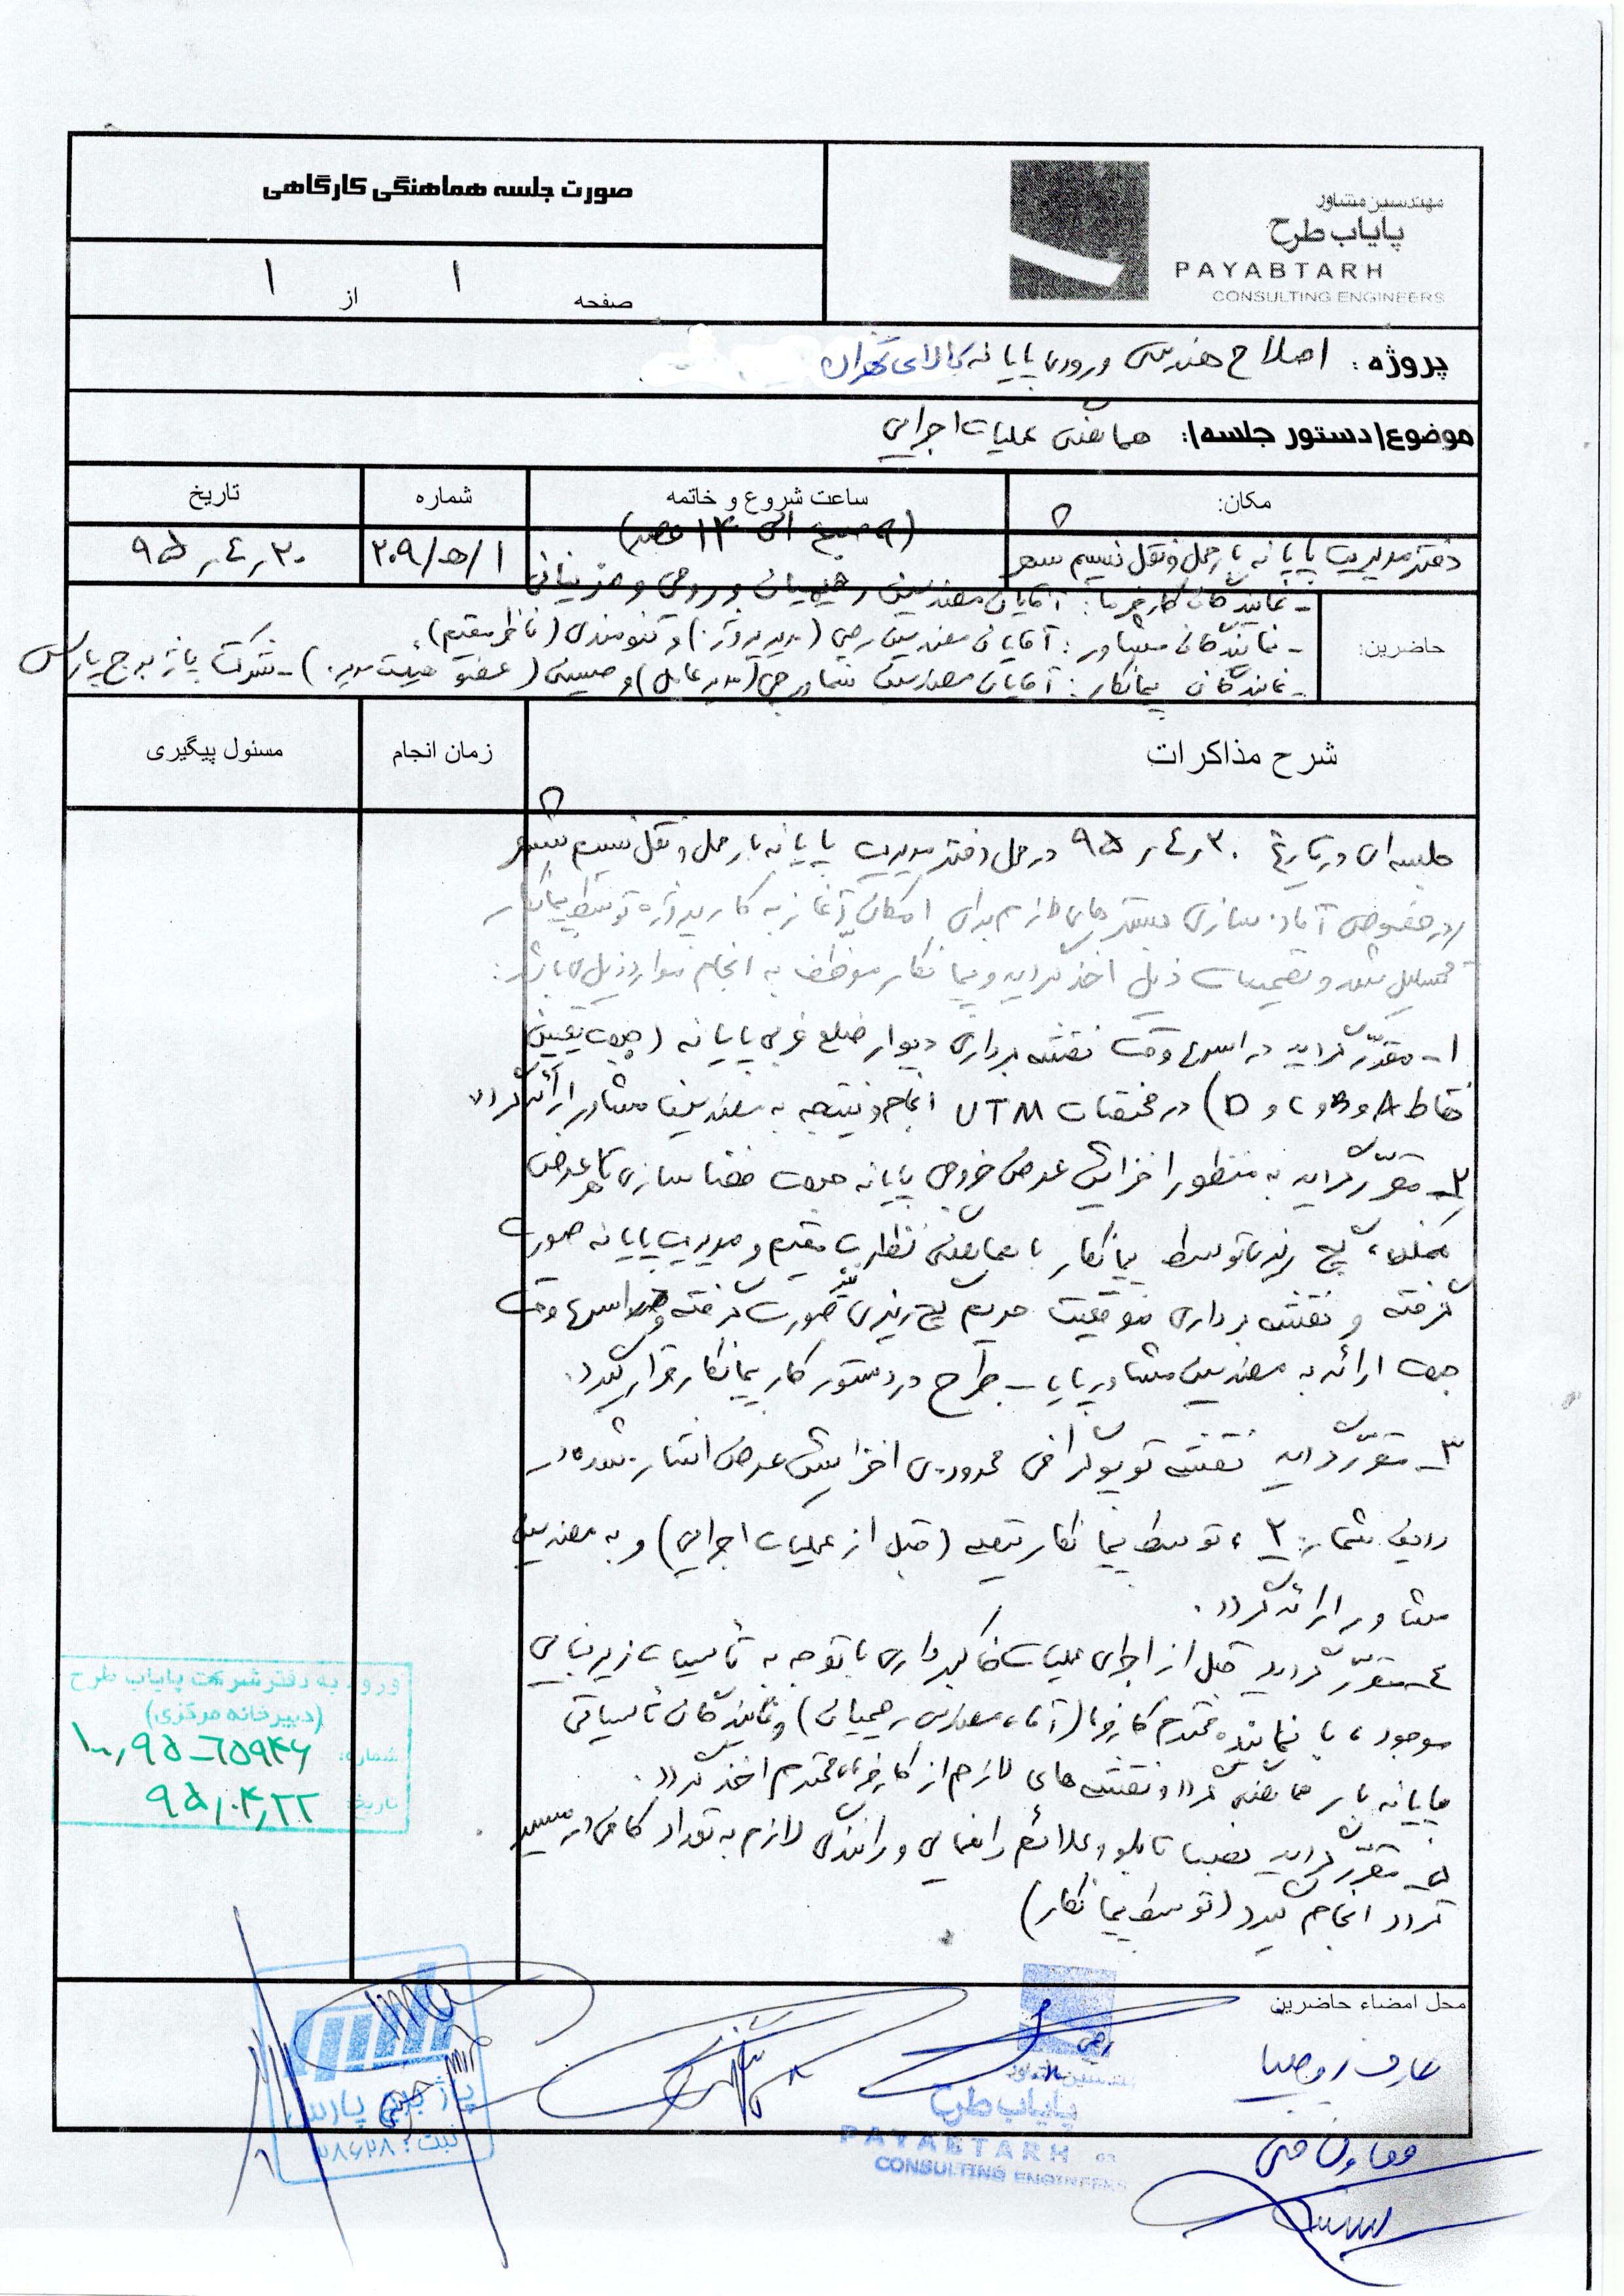 صورت جلسه هماهنگی کارگاهی
مهندسین مشاور
پایاب طرح
PAYABTARH
CONSULTING ENGINEERS
صفحه ۱ از ۱
پروژه: اصلاح هندسی ورودی پایانه کالای تهران
موضوع/دستور جلسه/: هماهنگی عملیات اجرایی
مکان: ساعت شروع و خاتمه شماره تاریخ
دفتر مدیریت پایانه بار حمل و نقل نسیم شهر (۹ صبح الی ۱۴ عصر) ۲۰۹/ه/۱ ۹۵٫۴٫۲۰
حاضرین:
- نمایندگان کارفرما: آقایان مهندسین رحیمیان و روحی و مزینانی
- نمایندگان مشاور: آقایان مهندسین رجبی (مدیر پروژه) و تنومندی (ناظر مقیم)
- نمایندگان پیمانکار: آقایان مهندسین (مدیر عامل) و حسینی (عضو هیئت مدیره) - شرکت پاژ برج پارس
شرح مذاکرات زمان انجام مسئول پیگیری
جلسه‌ای در تاریخ ۹۵٫۴٫۲۰ در محل دفتر مدیریت پایانه بار حمل و نقل نسیم شهر
در خصوص آماده سازی بسترهای لازم برای امکان آغاز به کار پروژه توسط پیمانکار
تشکیل شد و تصمیمات ذیل اخذ گردید و پیمانکار موظف به انجام موارد ذیل می باشد:
۱- مقرر گردید در اسرع وقت نقشه برداری دیوار ضلع غربی پایانه (جهت تعیین
نقاط A و B و C و D) در مختصات UTM انجام و نتیجه به مهندسین مشاور ارائه گردد
۲- مقرر گردید به منظور افزایش عرض خروجی پایانه جهت فضاسازی عرض
، گچ ریزی توسط پیمانکار با هماهنگی نظارت مقیم و مدیریت پایانه صورت
گرفته و نقشه برداری موقعیت حریم گچ ریزی نیز صورت گرفته و در اسرع وقت
جهت ارائه به مهندسین مشاور پایاب طرح در دستور کار پیمانکار قرار گیرد.
۳- مقرر گردید نقشه توپوگرافی محدوده‌ی افزایش عرض اشاره شده در
ردیف شماره ۲، توسط پیمانکار تهیه (قبل از عملیات اجرایی) و به مهندسین
مشاور ارائه گردد.
۴- مقرر گردید قبل از اجرای عملیات خاکبرداری با توجه به تأسیسات زیربنایی
موجود، با نماینده محترم کارفرما (آقای مهندس رحیمیان) و نمایندگان تأسیساتی
پایانه بار هماهنگی گردد و نقشه های لازم از کارفرمای محترم اخذ گردد.
۵- مقرر گردید نصب تابلو و علائم راهنمایی و رانندگی لازم به تعداد کافی در مسیر
تردد انجام گیرد (توسط پیمانکار)
ورود به دفتر شرکت پایاب طرح
(دبیرخانه مرکزی)
شماره: ۱۰٫۹۵-۶۵۹۴۶
تاریخ: ۹۵٫۰۴٫۲۲
محل امضاء حاضرین
رجبی
مهندسین مشاور
پایاب طرح
PAYABTARH
CONSULTING ENGINEERS
پاژ برج پارس
ثبت: ۳۸۶۲۸
معاون فنی